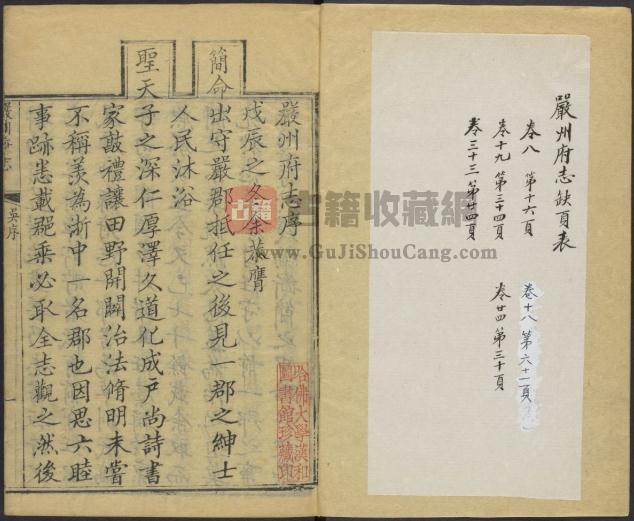 嚴州府志缺頁表
卷八 第十六頁
卷十九 第三十四頁
卷三十三 第廿四頁
卷十八 第六十一頁
卷廿四 第三十頁
嚴州府志序
戊辰之冬余恭膺
簡命出守嚴郡抵任之後見一郡之紳士
人民沐浴
聖天子之深仁厚澤久道化成戸尚詩書
家敦禮讓田野開闢治法脩明未嘗
不稱羨為浙中一名郡也因思六睦
事跡悉載郡乗必取全志觀之然後
吳序
哈佛大學漢和
圖書館珍藏印
古籍
古籍收藏網
www.GuJiShouCang.com